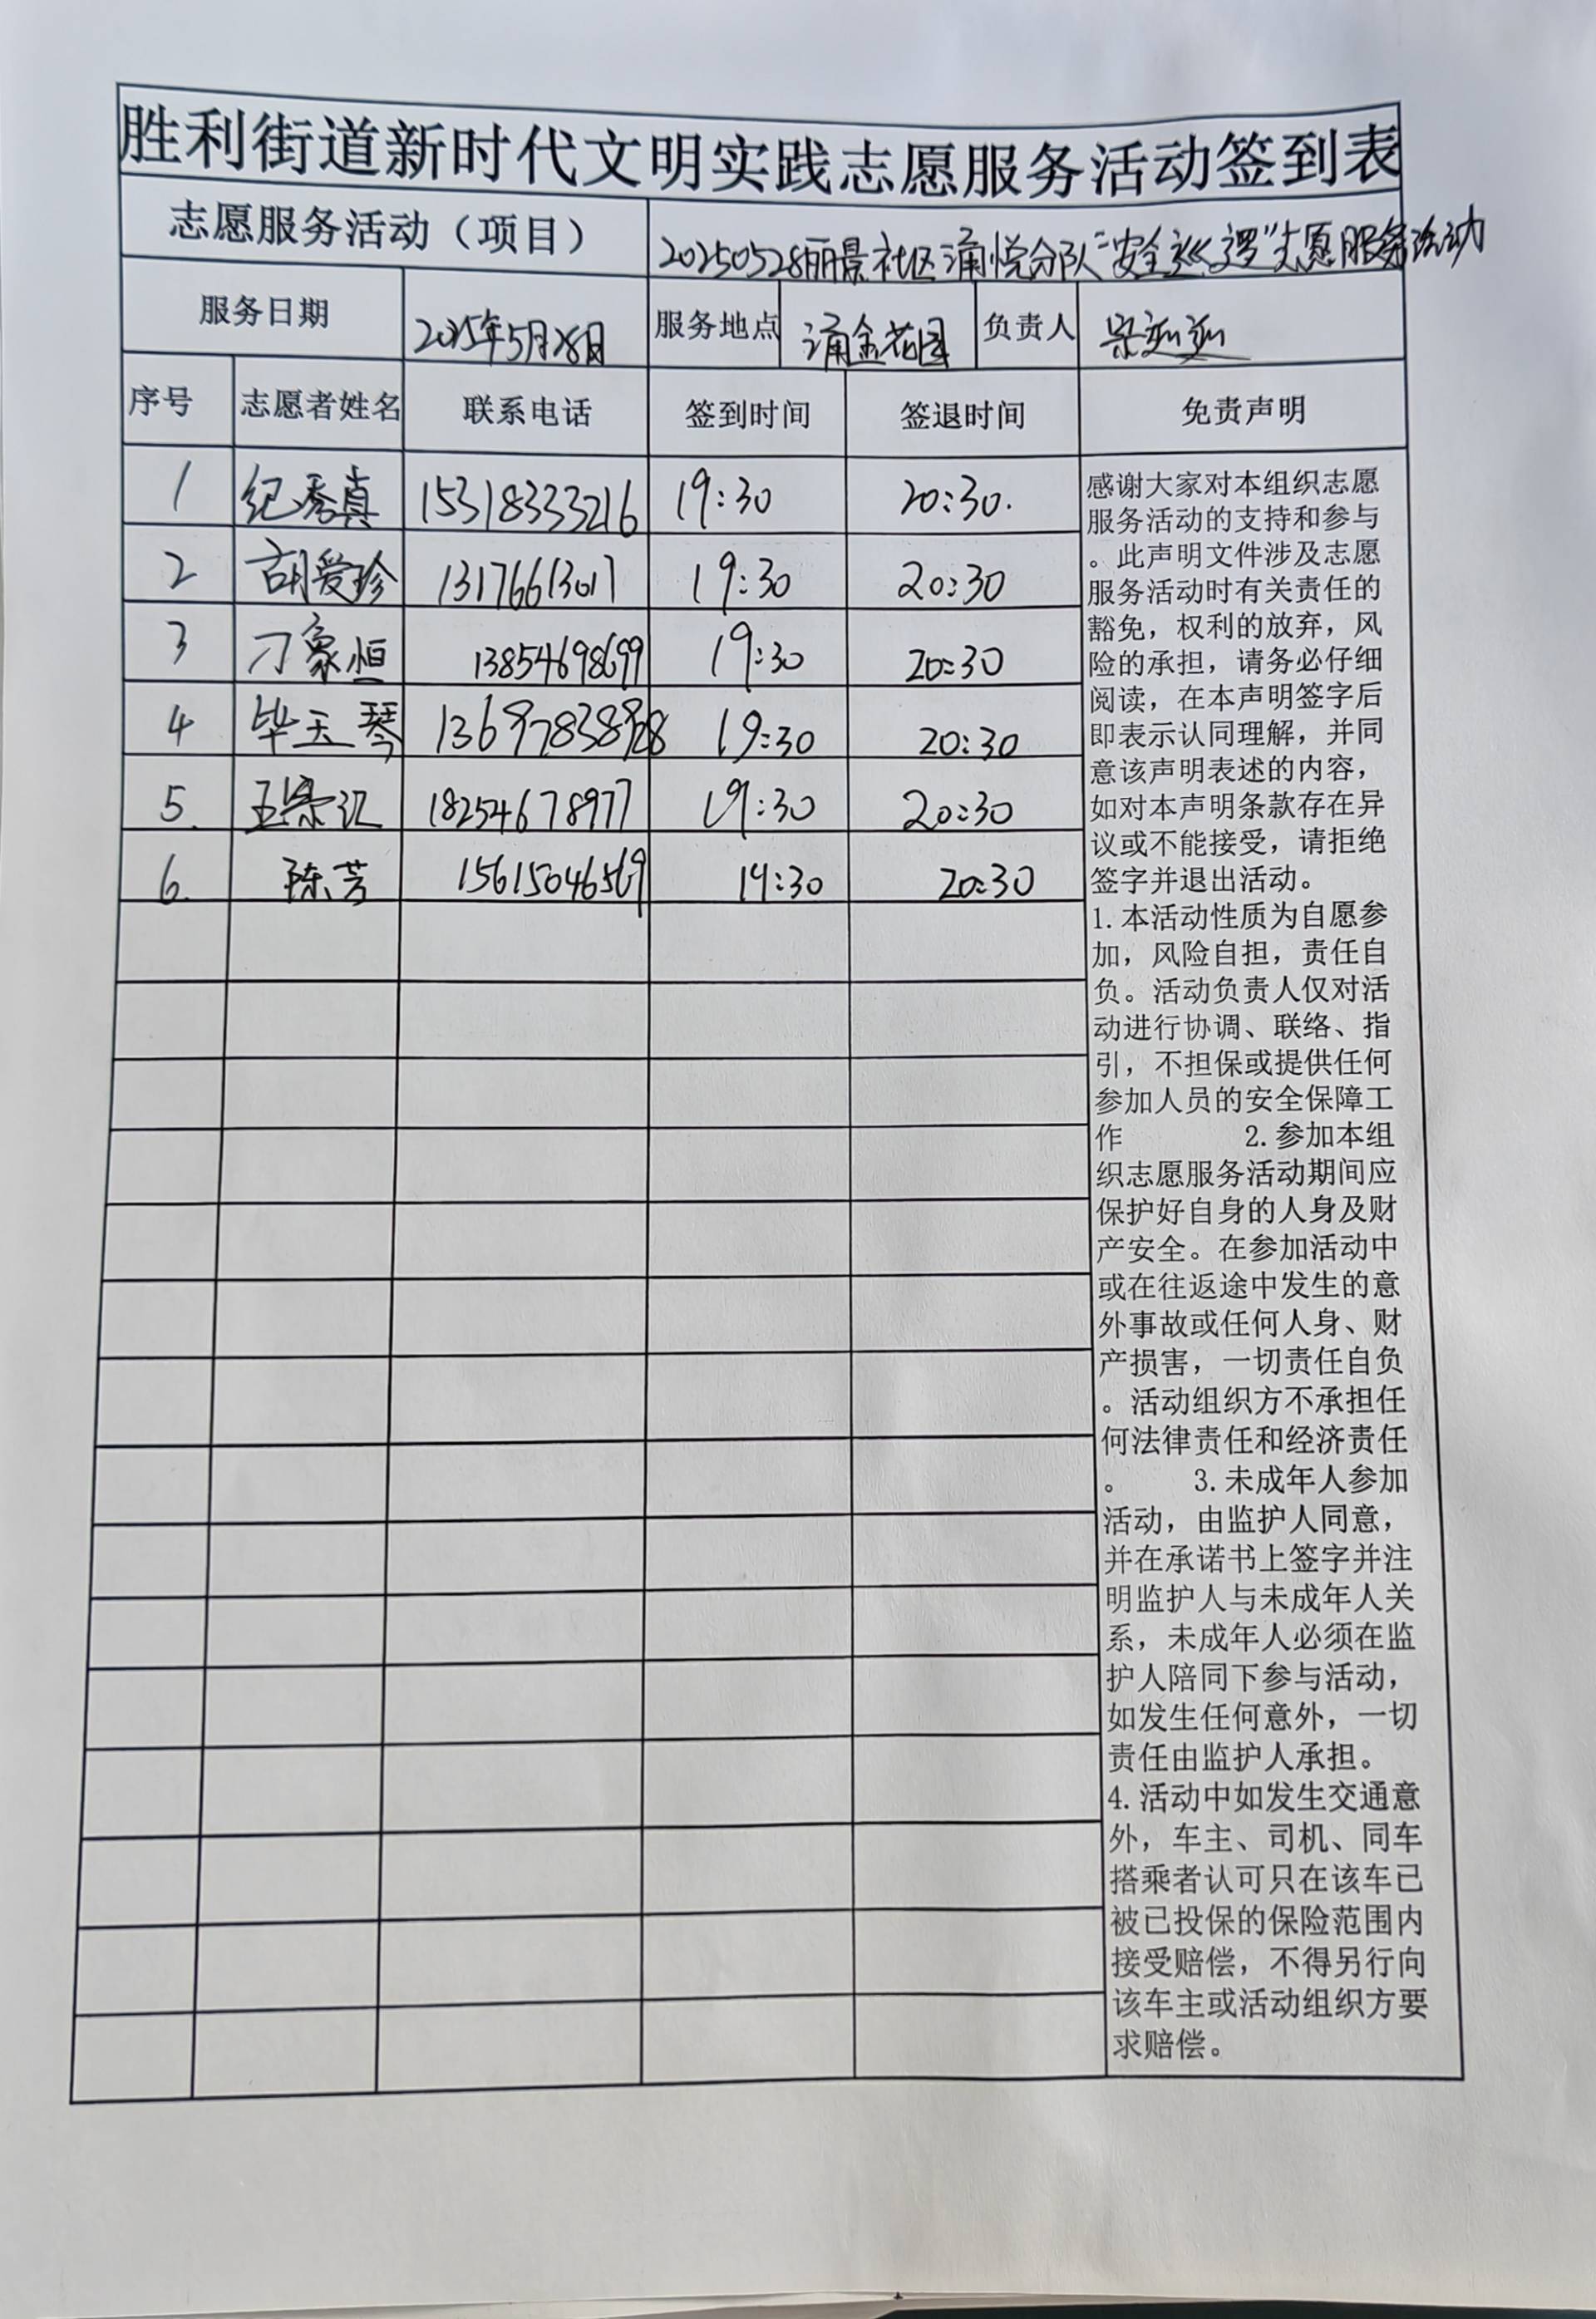 胜利街道新时代文明实践志愿服务活动签到表
志愿服务活动（项目） 20250528丽景社区涌悦分队“安全巡逻”志愿服务活动
服务日期 2025年5月28日 服务地点 涌金花园 负责人
序号 志愿者姓名 联系电话 签到时间 签退时间 免责声明
1 纪秀真 15318333216 19:30 20:30.
2 胡爱珍 13176613017 19:30 20:30
3 刁象恒 13854698699 19:30 20:30
4 毕玉琴 19:30 20:30
5. 18254678977 19:30 20:30
6. 陈芳 15615046569 19:30 20:30
感谢大家对本组织志愿
服务活动的支持和参与
。此声明文件涉及志愿
服务活动时有关责任的
豁免，权利的放弃，风
险的承担，请务必仔细
阅读，在本声明签字后
即表示认同理解，并同
意该声明表述的内容，
如对本声明条款存在异
议或不能接受，请拒绝
签字并退出活动。
1.本活动性质为自愿参
加，风险自担，责任自
负。活动负责人仅对活
动进行协调、联络、指
引，不担保或提供任何
参加人员的安全保障工
作 2.参加本组
织志愿服务活动期间应
保护好自身的人身及财
产安全。在参加活动中
或在往返途中发生的意
外事故或任何人身、财
产损害，一切责任自负
。活动组织方不承担任
何法律责任和经济责任
。 3.未成年人参加
活动，由监护人同意，
并在承诺书上签字并注
明监护人与未成年人关
系，未成年人必须在监
护人陪同下参与活动，
如发生任何意外，一切
责任由监护人承担。
4.活动中如发生交通意
外，车主、司机、同车
搭乘者认可只在该车已
被已投保的保险范围内
接受赔偿，不得另行向
该车主或活动组织方要
求赔偿。